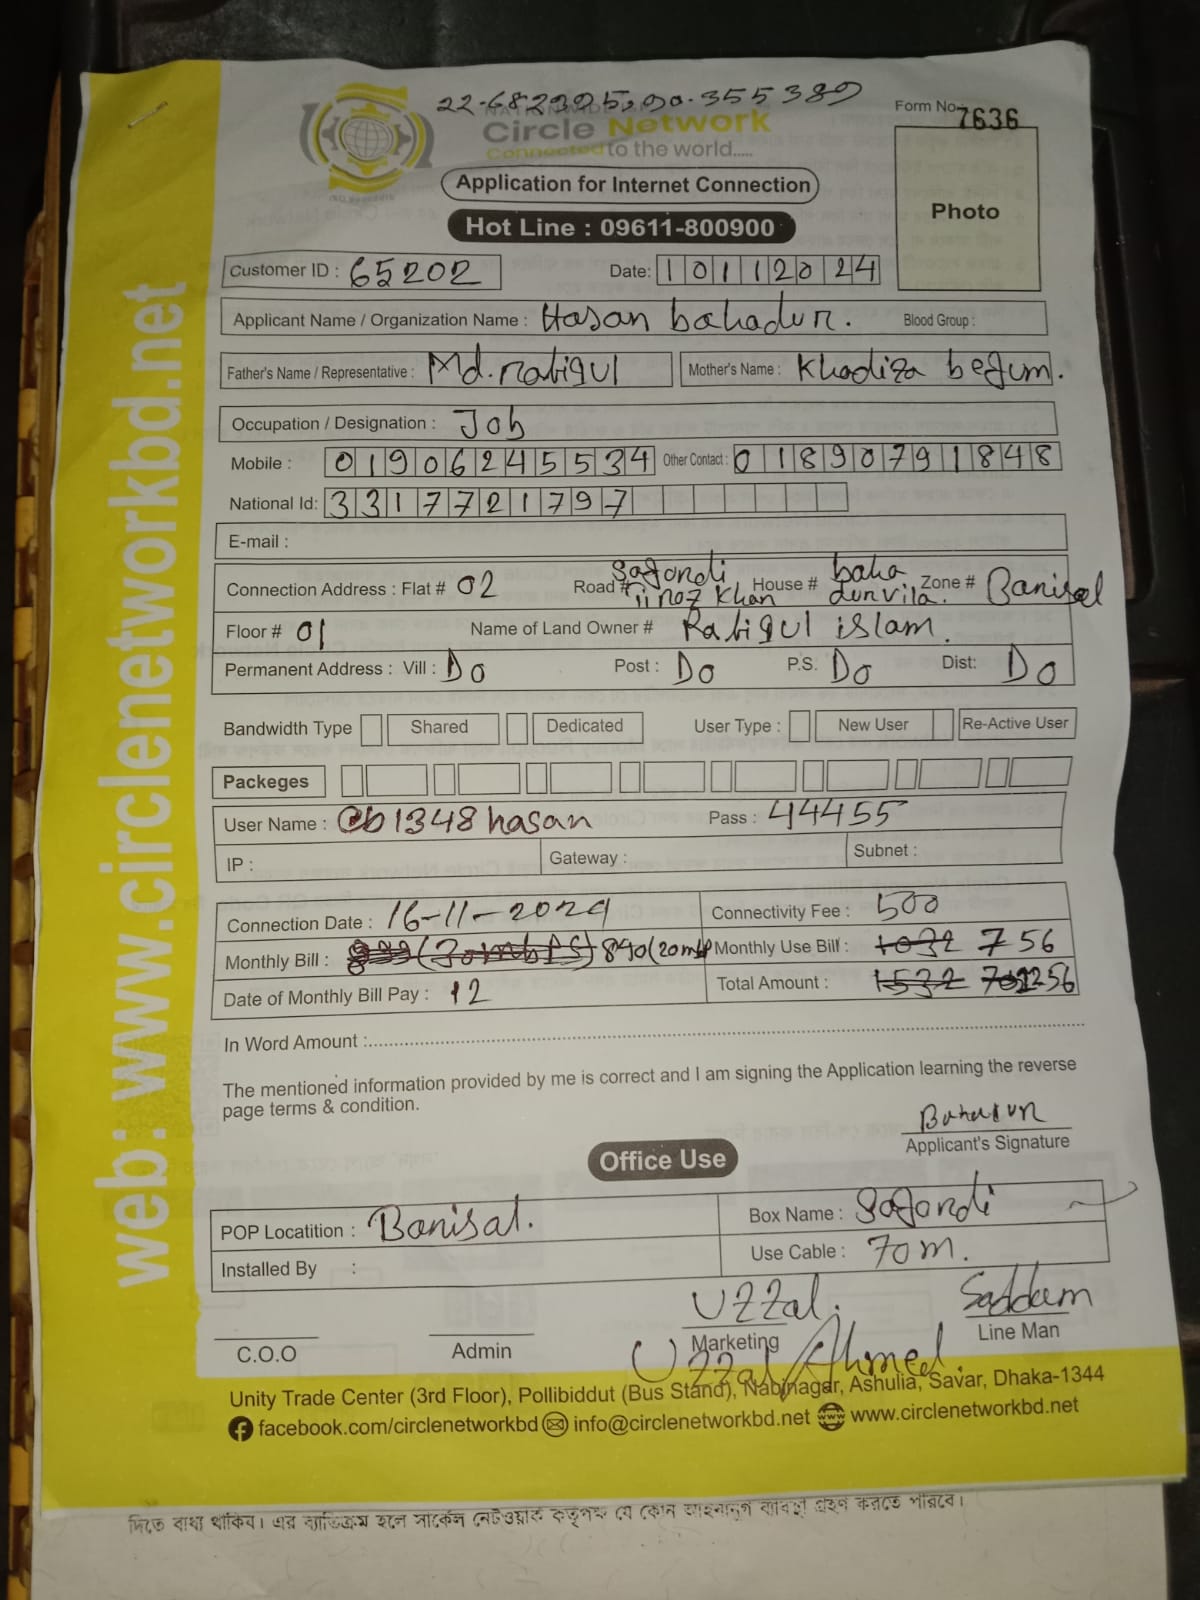 22.682305,90.355389
Form No- 7636
Circle Network
Connected to the world.....
Application for Internet Connection
Photo
Hot Line : 09611-800900
Customer ID : 65202 Date: 10112024
Applicant Name / Organization Name : Hasan bahadur. Blood Group :
Father's Name / Representative : Md. Rabiqul Mother's Name : Khadiza begum.
Occupation / Designation : Job
Mobile : 01906245534 Other Contact : 01890791848
National Id: 3317721797
E-mail :
Connection Address : Flat # 02 Road # Sagordi Khan House # baha Zone # Barisal
Floor # 01 Name of Land Owner # Rabiqul islam.
Permanent Address : Vill : Do Post : Do P.S. Do Dist: Do
Bandwidth Type Shared Dedicated User Type : New User Re-Active User
Packeges
User Name : cb1348hasan Pass : 44455
IP : Gateway : Subnet :
Connection Date : 16-11-2024 Connectivity Fee : 500
Monthly Bill : 840(20mbp Monthly Use Bill : 1032 756
Date of Monthly Bill Pay : 12 Total Amount : 1532 1256
In Word Amount :
The mentioned information provided by me is correct and I am signing the Application learning the reverse
page terms & condition.
Bahadur
Applicant's Signature
Office Use
POP Locatition : Barisal. Box Name : Sagordi
Installed By : Use Cable : 70m.
Uzzal. Saddam
C.O.O Admin Marketing Line Man
Uzzal Ahmed.
Unity Trade Center (3rd Floor), Pollibiddut (Bus Stand), Nabinagar, Ashulia, Savar, Dhaka-1344
facebook.com/circlenetworkbd info@circlenetworkbd.net www.circlenetworkbd.net
web: www.circlenetworkbd.net
দিতে বাধ্য থাকিব। এর ব্যতিক্রম হলে সার্কেল নেটওয়ার্ক কর্তৃপক্ষ যে কোন আইনানুগ ব্যবস্থা গ্রহণ করতে পারিবে।